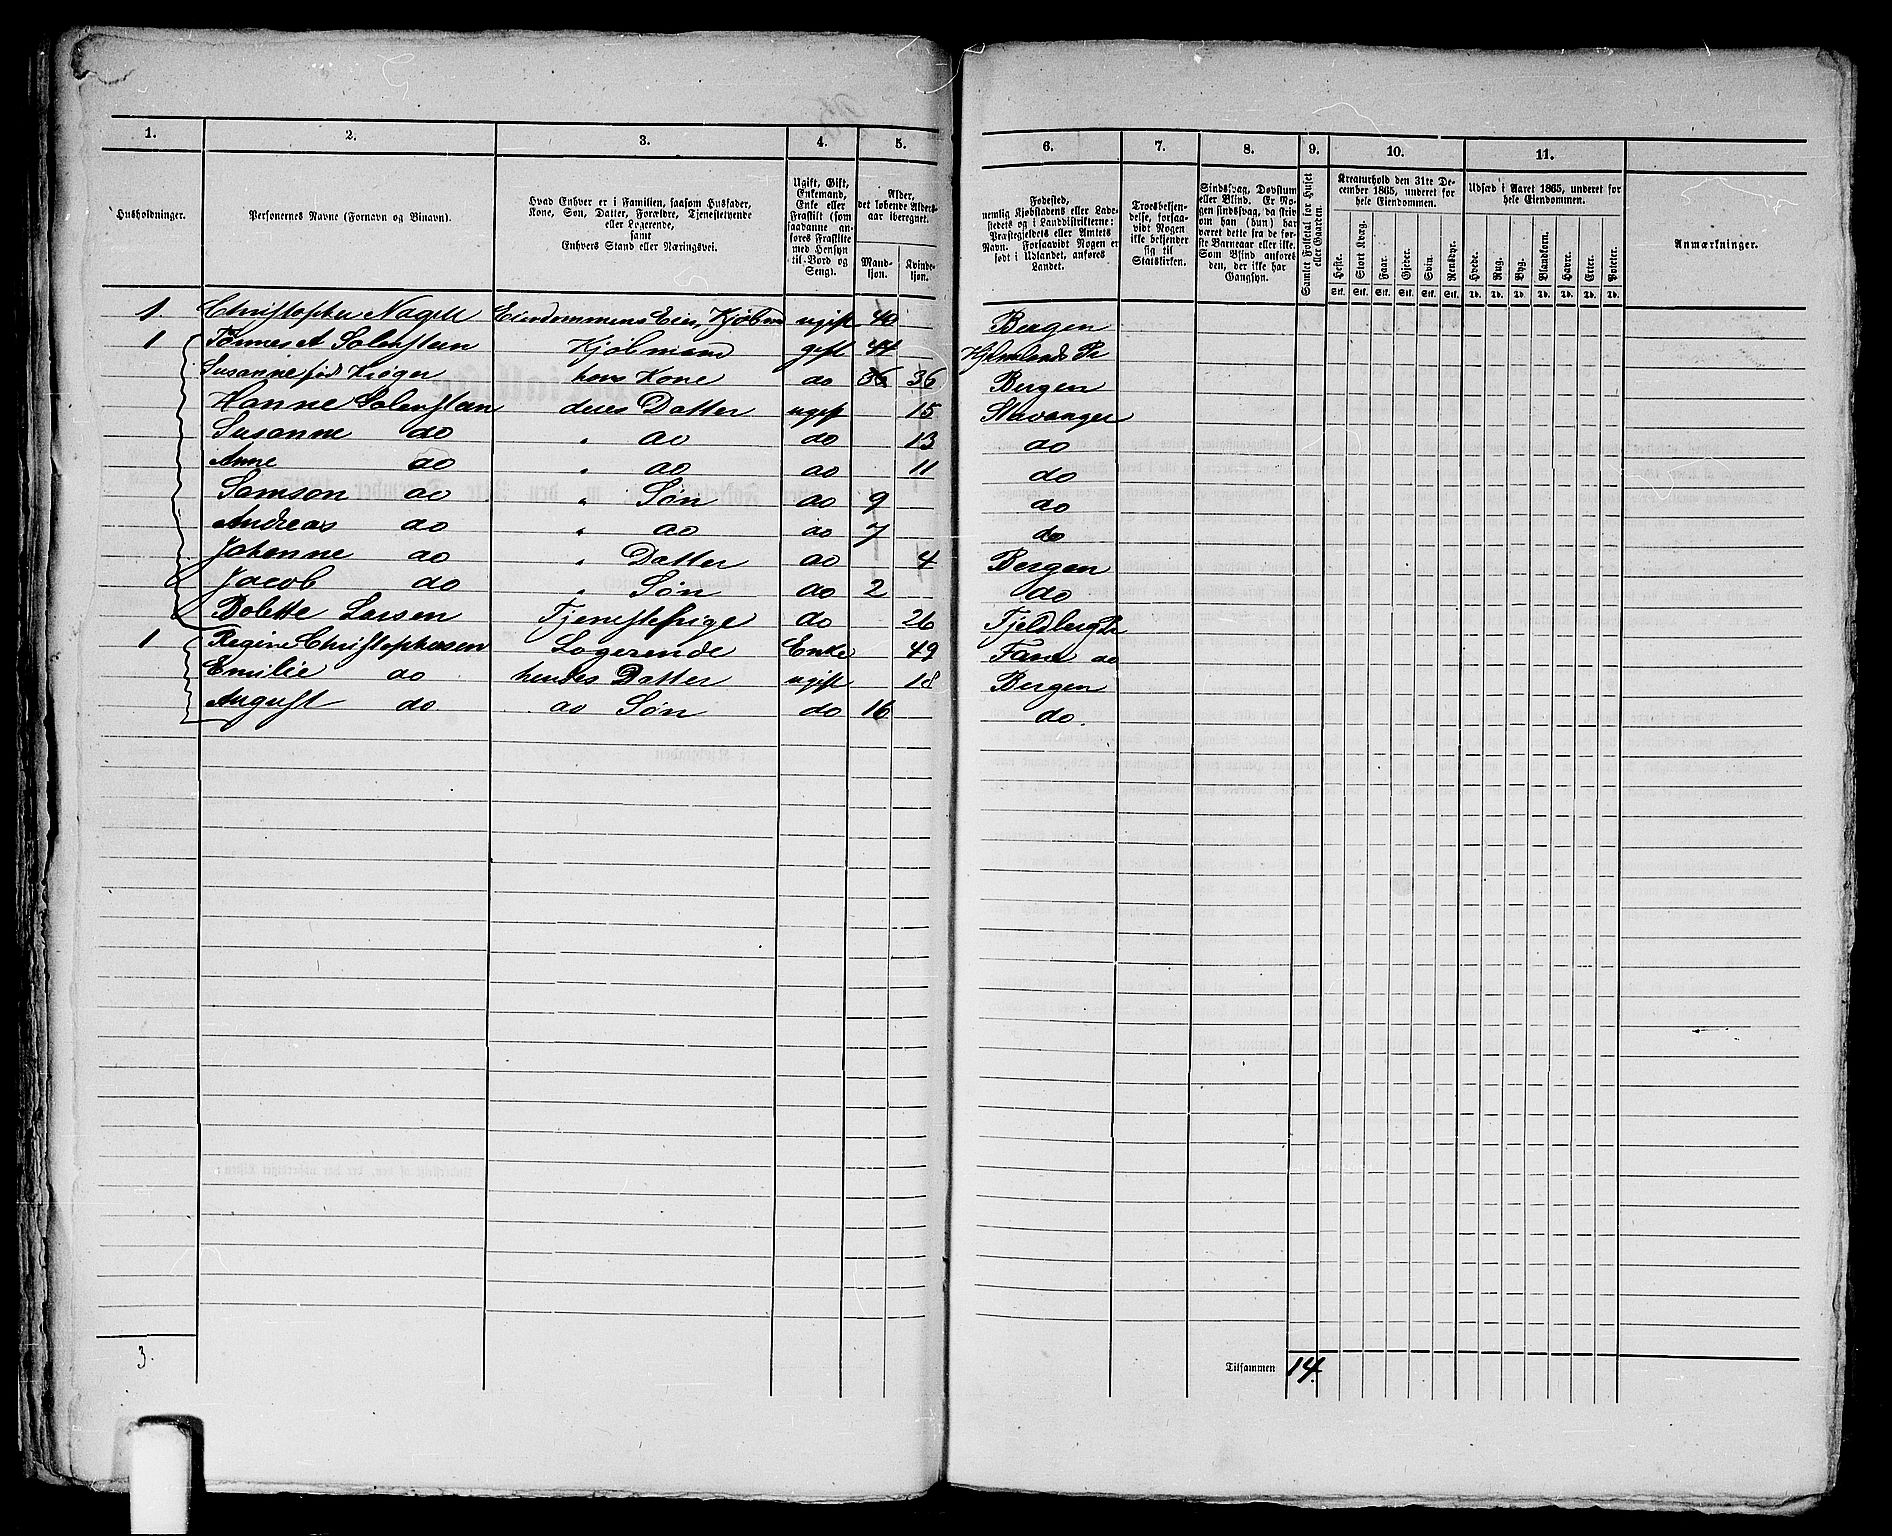 1. 2. 3. 4. 5. 6. 7. 8. 9. 10. 11.
Husholdninger.
Personernes Navne (Fornavn og Binavn).
Hvad Enhver er i Familien, saasom Husfader,
Kone, Søn, Datter, Forældre, Tjenestetyende
eller Logerende,
samt
Enhvers Stand eller Næringsvei.
Ugift, Gift,
Enkemand,
Enke eller
Fraskilt (som
saadanne an-
føres Fraskilte
med Hensyn
til Bord og
Seng).
Alder,
det løbende Alders-
aar iberegnet.
Mand-
kjøn.
Kvinde-
kjøn.
Fødested,
nemlig Kjøbstadens eller Lade-
stedets og i Landdistrikterne:
Præstegjeldets eller Amtets
Navn. Forsaavidt Nogen er
født i Udlandet, anføres
Landet.
Troesbekjen-
delse, forsaa-
vidt Nogen
ikke bekjender
sig til
Statskirken.
Sindssvag, Døvstum
eller Blind. Er No-
gen sindssvag, da skriv
om han (hun) har
været dette fra de før-
ste Barneaar eller ikke.
Som Blind anføres
den, der ikke har
Gangsyn.
Samlet Folketal for Huset
eller Gaarden.
Kreaturhold den 31te De-
cember 1865, underet for
hele Eiendommen.
Heste. Stort Kvæg. Faar. Gjeder. Svin. Rensdyr.
Stk. Stk. Stk. Stk. Stk. Stk.
Udsæd i Aaret 1865, underet for
hele Eiendommen.
Hvede. Rug. Byg. Blandkorn. Havre. Erter. Poteter.
Td. Td. Td. Td. Td. Td. Td.
Anmærkninger.
1. Christopher Nagell Eiendommens Eier, Kjøbmand ugift 40 Bergen
1 Tønnes A Solensteen Kjøbmand gift 44 Hjelmelands Pr
Susanne fød Krøger hans Kone do 36 36 Bergen
Hanne Solensteen deres Datter ugift 15 Stavanger
Susanne do " do do 13 do
Anne do " do do 11 do
Samson do " Søn do 9 do
Andreas do " do do 7 do
Johanne do " Datter do 4 Bergen
Jacob do " Søn do 2 do
Bolette Larsen Tjenestepige do 26 Fjeldberg Pr
1 Regine Christophersen Logerende Enke 49 Fane do
Emilie do hendes Datter ugift 18 Bergen
August do do Søn do 16 do.
3.
Tilsammen 14.